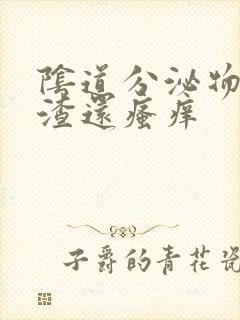 陰道分泌物
渣還瘙痒
子爵的青花瓷